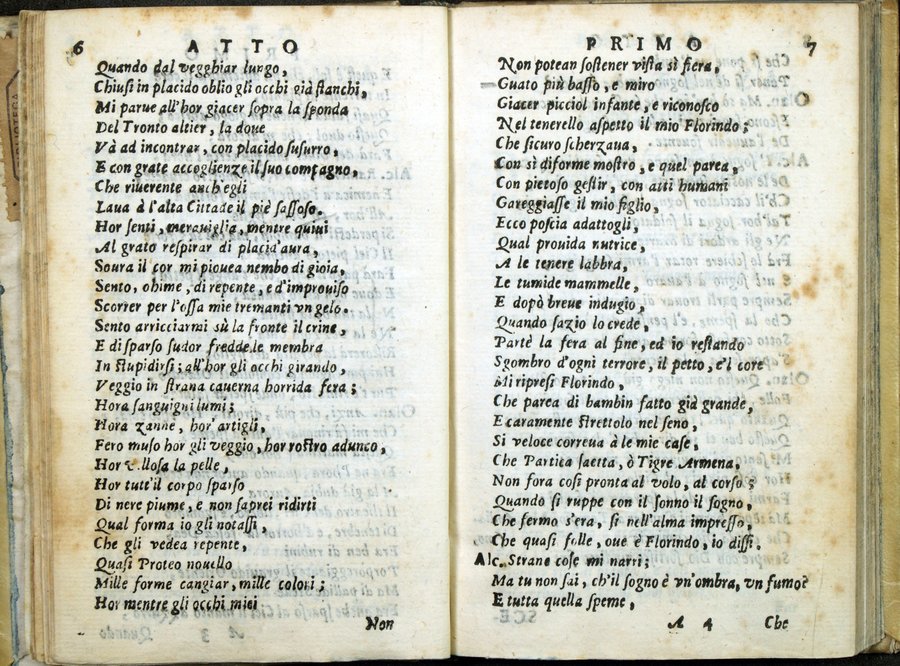 6 ATTO
Quando dal vegghiar lungo,
Chiusi in placido oblio gli occhi già stanchi,
Mi parue all'hor giacer sopra la sponda
Del Tronto altier, la doue
Và ad incontrar, con placido susurro,
E con grate accoglienze il suo compagno,
Che riuerente anch'egli
Laua à l'alta Cittade il piè sassoso.
Hor senti, merauiglia, mentre quiui
Al grato respirar di placid'aura,
Soura il cor mi piouea nembo di gioia,
Sento, ohime, di repente, e d'improuiso
Scorrer per l'ossa mie tremanti vn gelo.
Sento arricciarmi sù la fronte il crine,
E di sparso sudor fredde le membra
In stupidirsi; all'hor gli occhi girando,
Veggio in strana cauerna horrida fera;
Hora sanguigni lumi;
Hora zanne, hor artigli,
Fero muso hor gli veggio, hor rostro adunco,
Hor llosa la pelle,
Hor tutt'il corpo sparso
Di nere piume, e non saprei ridirti
Qual forma io gli notassi,
Che gli vedea repente,
Quasi Proteo nouello
Mille forme cangiar, mille colori;
Hor mentre gli occhi miei
A 3 Non
PRIMO 7
Non potean sostener vista sì fiera,
Guato più basso, e miro
Giacer picciol infante, e riconosco
Nel tenerello aspetto il mio Florindo;
Che sicuro scherzaua,
Con sì diforme mostro, e quel parea,
Con pietoso gestir, con atti humani
Gareggiasse il mio figlio,
Ecco poscia adattogli,
Qual prouida nutrice,
A le tenere labbra,
Le tumide mammelle,
E dopò breue indugio,
Quando sazio lo crede,
Partè la fera al fine, ed io restando
Sgombro d'ogni terrore, il petto, e'l core
Mi ripresi Florindo,
Che parea di bambin fatto già grande,
E caramente strettolo nel seno,
Si veloce correua à le mie case,
Che Partica saetta, ò Tigre Armena,
Non fora così pronta al volo, al corso;
Quando si ruppe con il sonno il sogno,
Che fermo s'era, sì nell'alma impresso,
Che quasi folle, oue è Florindo, io dissi.
Alc. Strane cose mi narri;
Ma tu non sai, ch'il sogno è vn'ombra, vn fumo?
E tutta quella speme,
A 4 Che